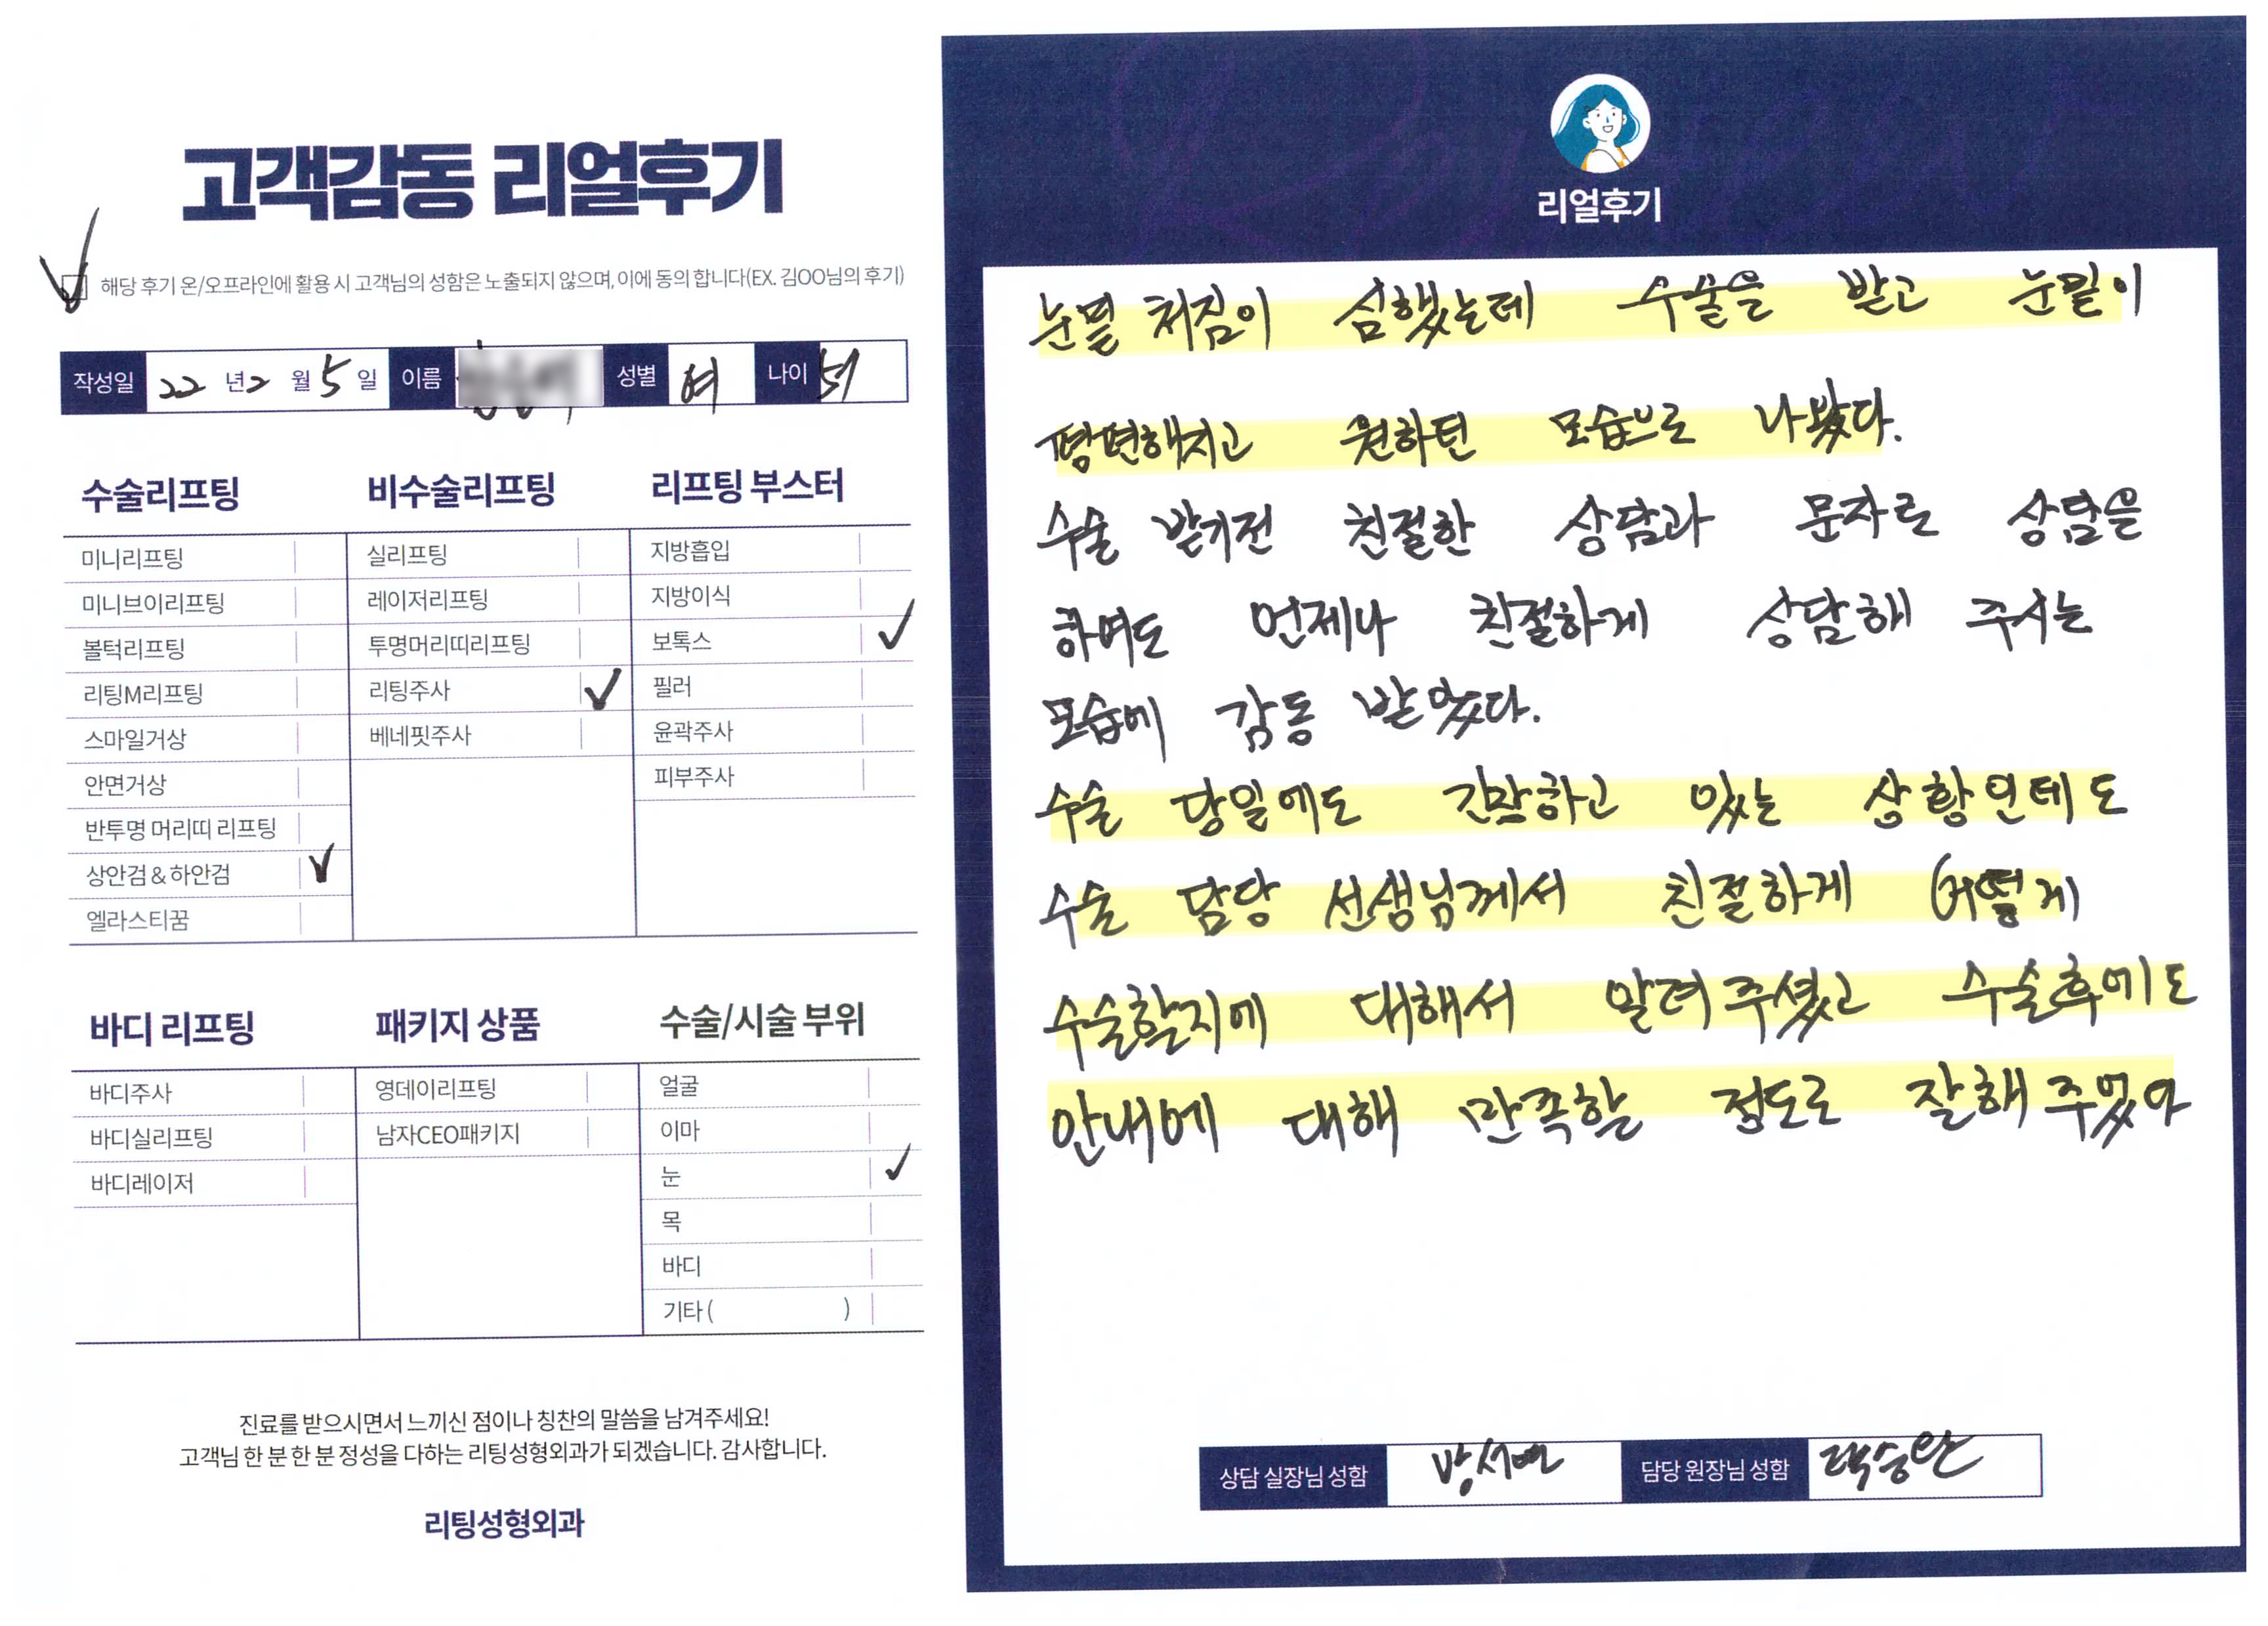 고객감동 리얼후기
해당 후기 온/오프라인에 활용 시 고객님의 성함은 노출되지 않으며, 이에 동의 합니다(EX. 김OO님의 후기)
작성일 22 년 2 월 5 일 이름 성별 여 나이 51
수술리프팅
미니리프팅
미니브이리프팅
볼턱리프팅
리팅M리프팅
스마일거상
안면거상
반투명 머리띠 리프팅
상안검 & 하안검
엘라스티꿈
비수술리프팅
실리프팅
레이저리프팅
투명머리띠리프팅
리팅주사
베네핏주사
리프팅 부스터
지방흡입
지방이식
보톡스
필러
윤곽주사
피부주사
바디 리프팅
바디주사
바디실리프팅
바디레이저
패키지 상품
영데이리프팅
남자CEO패키지
수술/시술 부위
얼굴
이마
눈
목
바디
기타 ( )
진료를 받으시면서 느끼신 점이나 칭찬의 말씀을 남겨주세요!
고객님 한 분 한 분 정성을 다하는 리팅성형외과가 되겠습니다. 감사합니다.
리팅성형외과
리얼후기
눈밑 처짐이 심했는데 수술을 받고 눈밑이
평편해지고 원하던 모습으로 나왔다.
수술 받기전 친절한 상담과 문자로 상담을
하여도 언제나 친절하게 상담해 주시는
모습에 감동 받았다.
수술 당일에도 긴장하고 있는 상황인데도
수술 담당 선생님께서 친절하게 어떻게
수술할지에 대해서 알려주셨고 수술후에도
안내에 대해 만족할 정도로 잘해 주었다
상담 실장님 성함 담당 원장님 성함